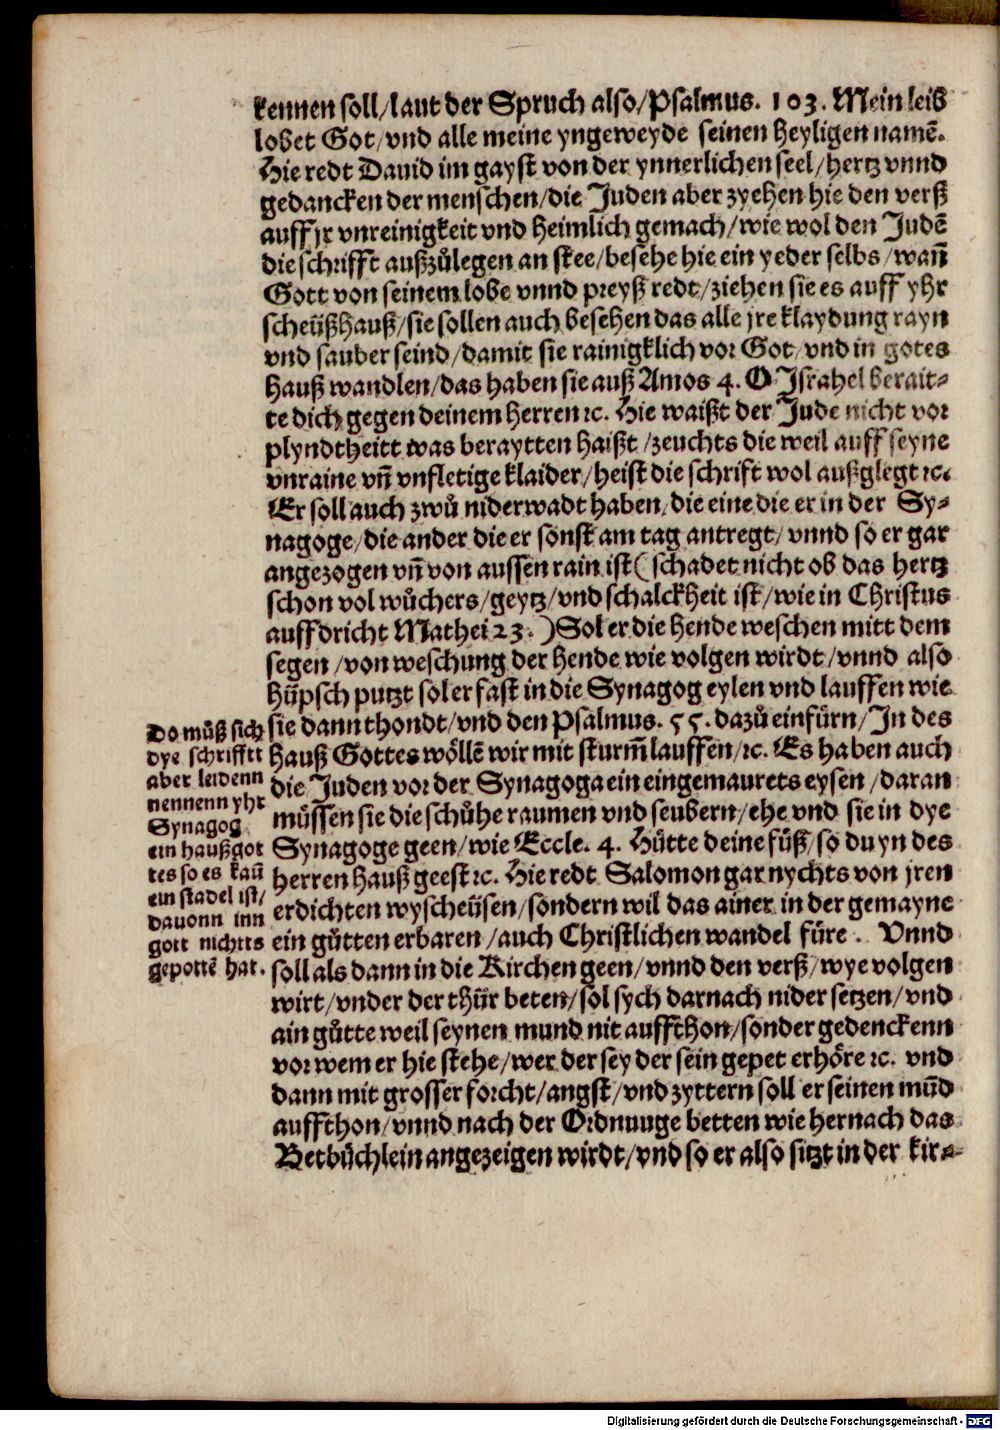 kennen soll/laut der Spruch also/Psalmus. 103. Mein leib
lobet Got/vnd alle meine yngeweyde seinen heyligen namē.
Hie redt Dauid im gayst von der ynnerlichen seel/hertz vnnd
gedancken der menschen/die Juden aber zyehen hie den verß
auff jr vnreinigkeit vnd heimlich gemach/wie wol den Judē
die schrifft außzůlegen an stee/besehe hie ein yeder selbs/wañ
Gott von seinem lobe vnnd preyß redt/ziehen sie es auff yhr
scheüßhauß/sie sollen auch besehen das alle jre klaydung rayn
vnd sauber seind/damit sie rainigklich vor Got/vnd in gotes
hauß wandlen/das haben sie auß Amos 4. O Israhel berait⸗
te dich gegen deinem herren ꝛc. Hie waißt der Jude nicht vor
plyndtheitt was beraytten haißt/zeuchts die weil auff seyne
vnraine vñ vnfletige klaider/heist die schrift wol außglegt ꝛc.
Er soll auch zwů niderwadt haben/die eine die er in der Sy⸗
nagoge/die ander die er sonst am tag antregt/vnnd so er gar
angezogen vñ von aussen rain ist(schadet nicht ob das hertz
schon vol wůchers/geytz/vnd schalckheit ist/wie in Christus
auffdricht Mathei 23.)Sol er die hende weschen mitt dem
segen/von weschung der hende wie volgen wirdt/vnnd also
hüpsch putzt sol er fast in die Synagog eylen vnd lauffen wie
sie dann thondt/vnd den Psalmus. 55. dazů einfürn/In des
hauß Gottes wöllē wir mit sturm̃ lauffen/ꝛc. Es haben auch
die Juden vor der Synagoga ein eingemaurets eysen/daran
müssen sie die schůhe raumen vnd seubern/ehe vnd sie in dye
Synagoge geen/wie Eccle. 4. Hütte deine füß/so du yn des
herren hauß geest ꝛc. Hie redt Salomon gar nychts von jren
erdichten wyscheüsen/sondern wil das ainer in der gemayne
ein gůtten erbaren/auch Christlichen wandel füre. Vnnd
soll als dann in die Kirchen geen/vnnd den verß/wye volgen
wirt/vnder der thür beten/sol sych darnach nider setzen/vnd
ain gůtte weil seynen mund nit auffthon/sonder gedenckenn
vor wem er hie stehe/wer der sey der sein gepet erhöre ꝛc. vnd
dann mit grosser forcht/angst/vnd zyttern soll er seinen mūd
auffthon/vnnd nach der Ordnuuge betten wie hernach das
Betbüchlein angezeigen wirdt/vnd so er also sitzt in der kir⸗
Do můß sich
dye schrifftt
aber leidenn
nennenn yhr
Synagog
ein haußgot
tes so es kaū
ein stadel ist/
dauonn inn
gott nichtts
gepottē hat.
Digitalisierung gefördert durch die Deutsche Forschungsgemeinschaft - DFG